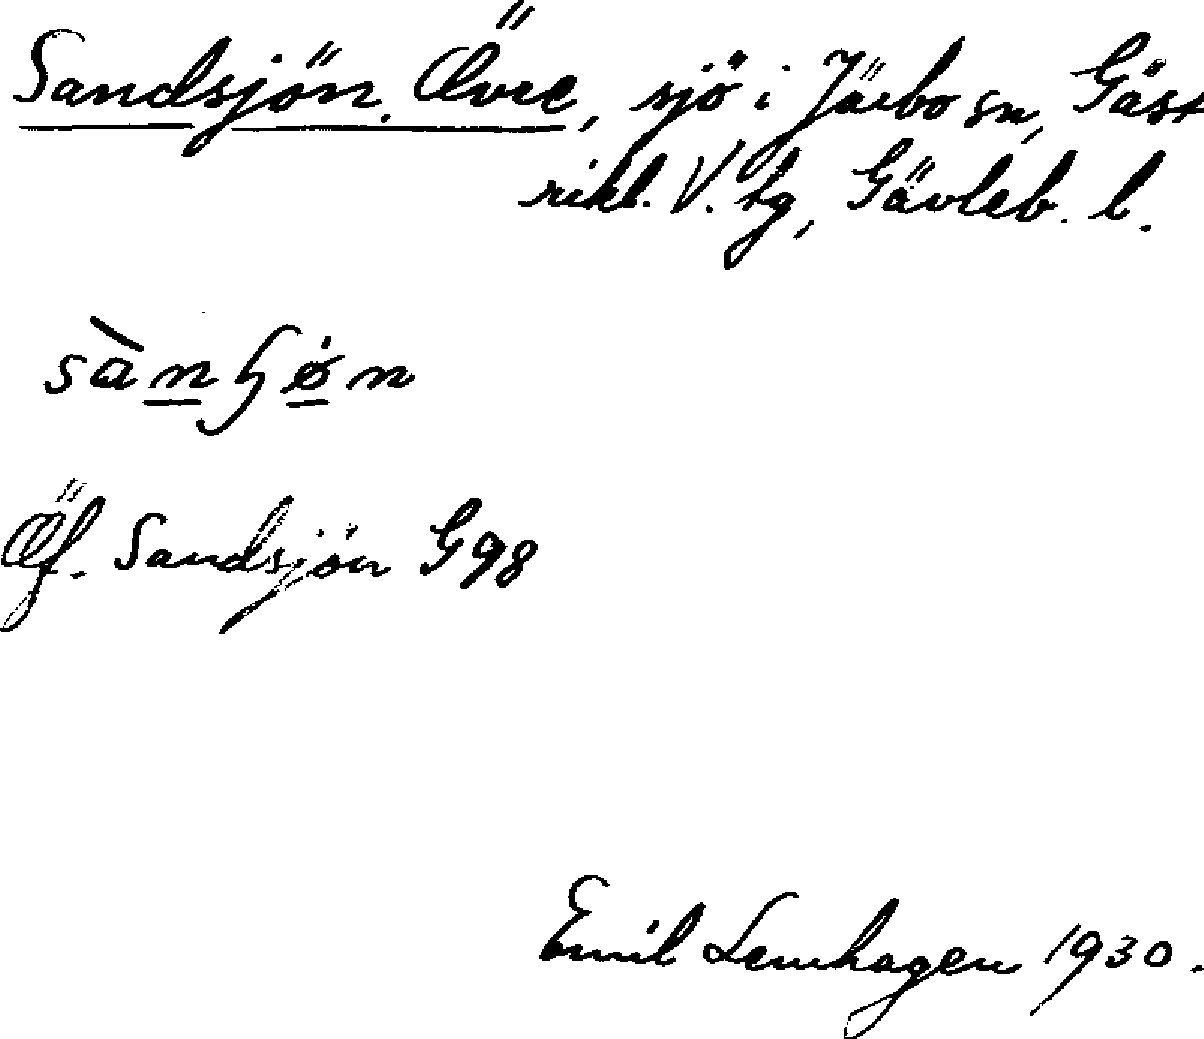 Sandsjön, Övre, sjö i Järbo sn, Gäst
rikl. V. tg, Gävleb. l.
Öf. Sandsjön G98
Emil Lenhagen 1930.